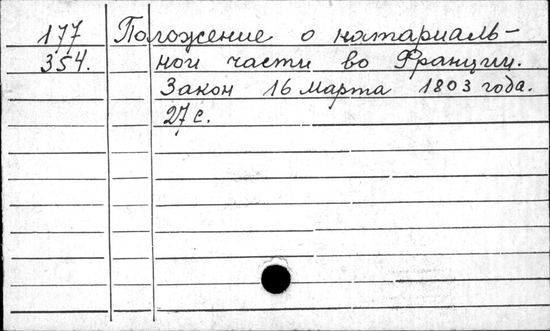 177 Положение о натариаль-
354. ной части во Франции.
Закон 16 марта 1803 года.
27 с.